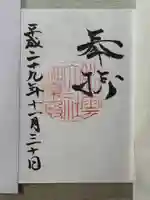 奉拝
平成二十九年十一月三十日